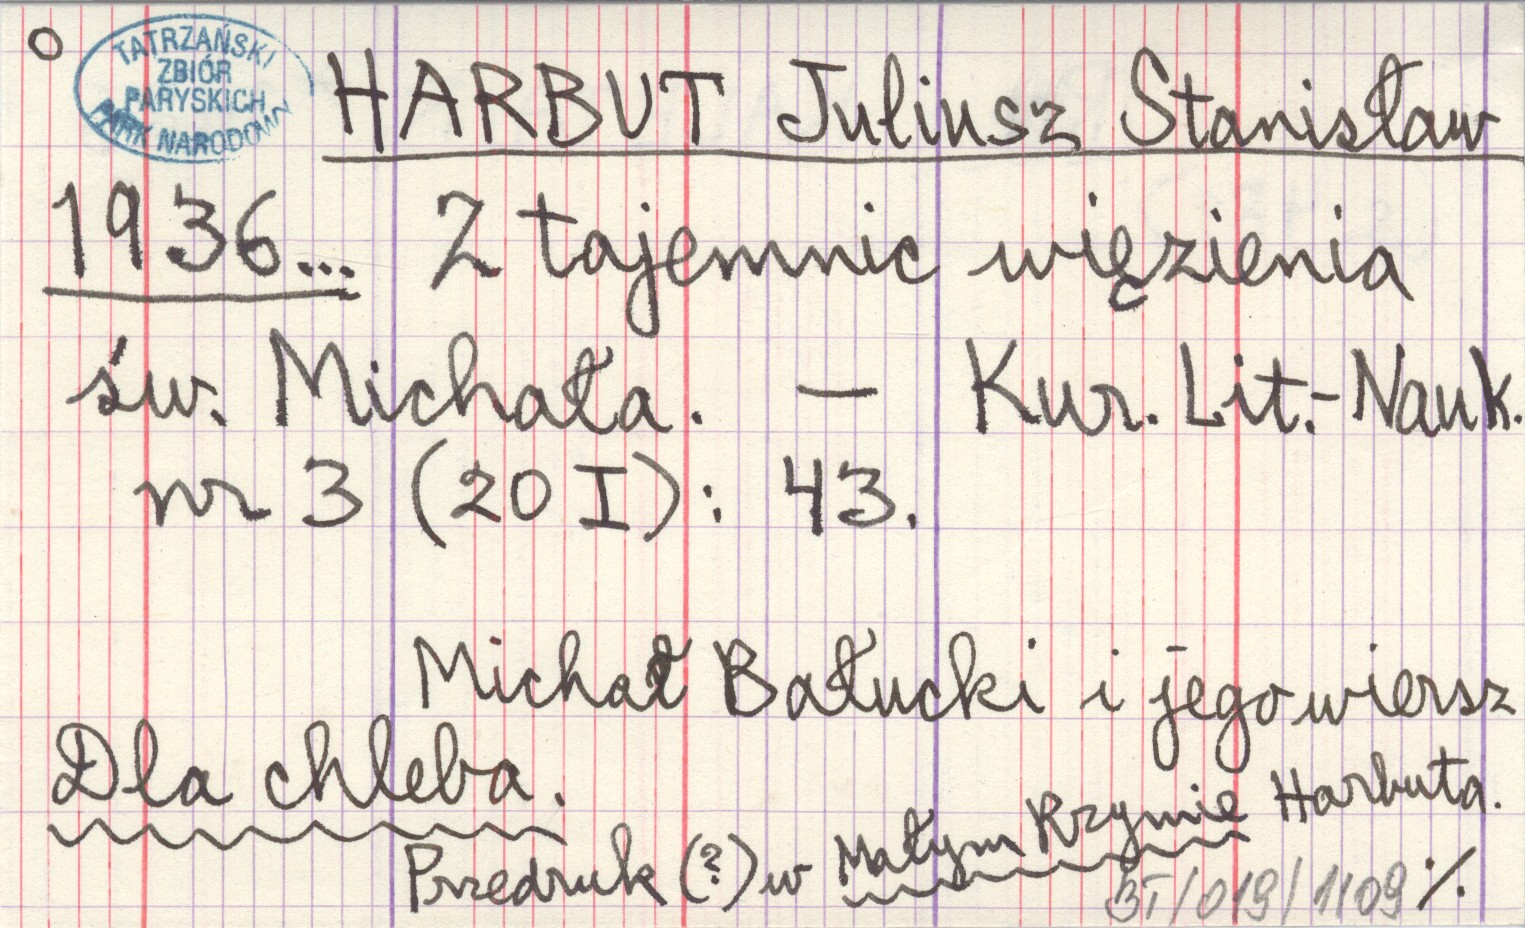 TATRZAŃSKI
ZBIÓR
PARYSKICH
PARK NARODOWY
HARBUT Juliusz Stanisław
1936... Z tajemnic więzienia
św. Michała. — Kur. Lit.-Nauk.
nr 3 (20 I): 43.
Michał Bałucki i jego wiersz
Dla chleba.
Przedruk (?) w Małym Rzymie Harbuta.
BT/019/1109 ·/.